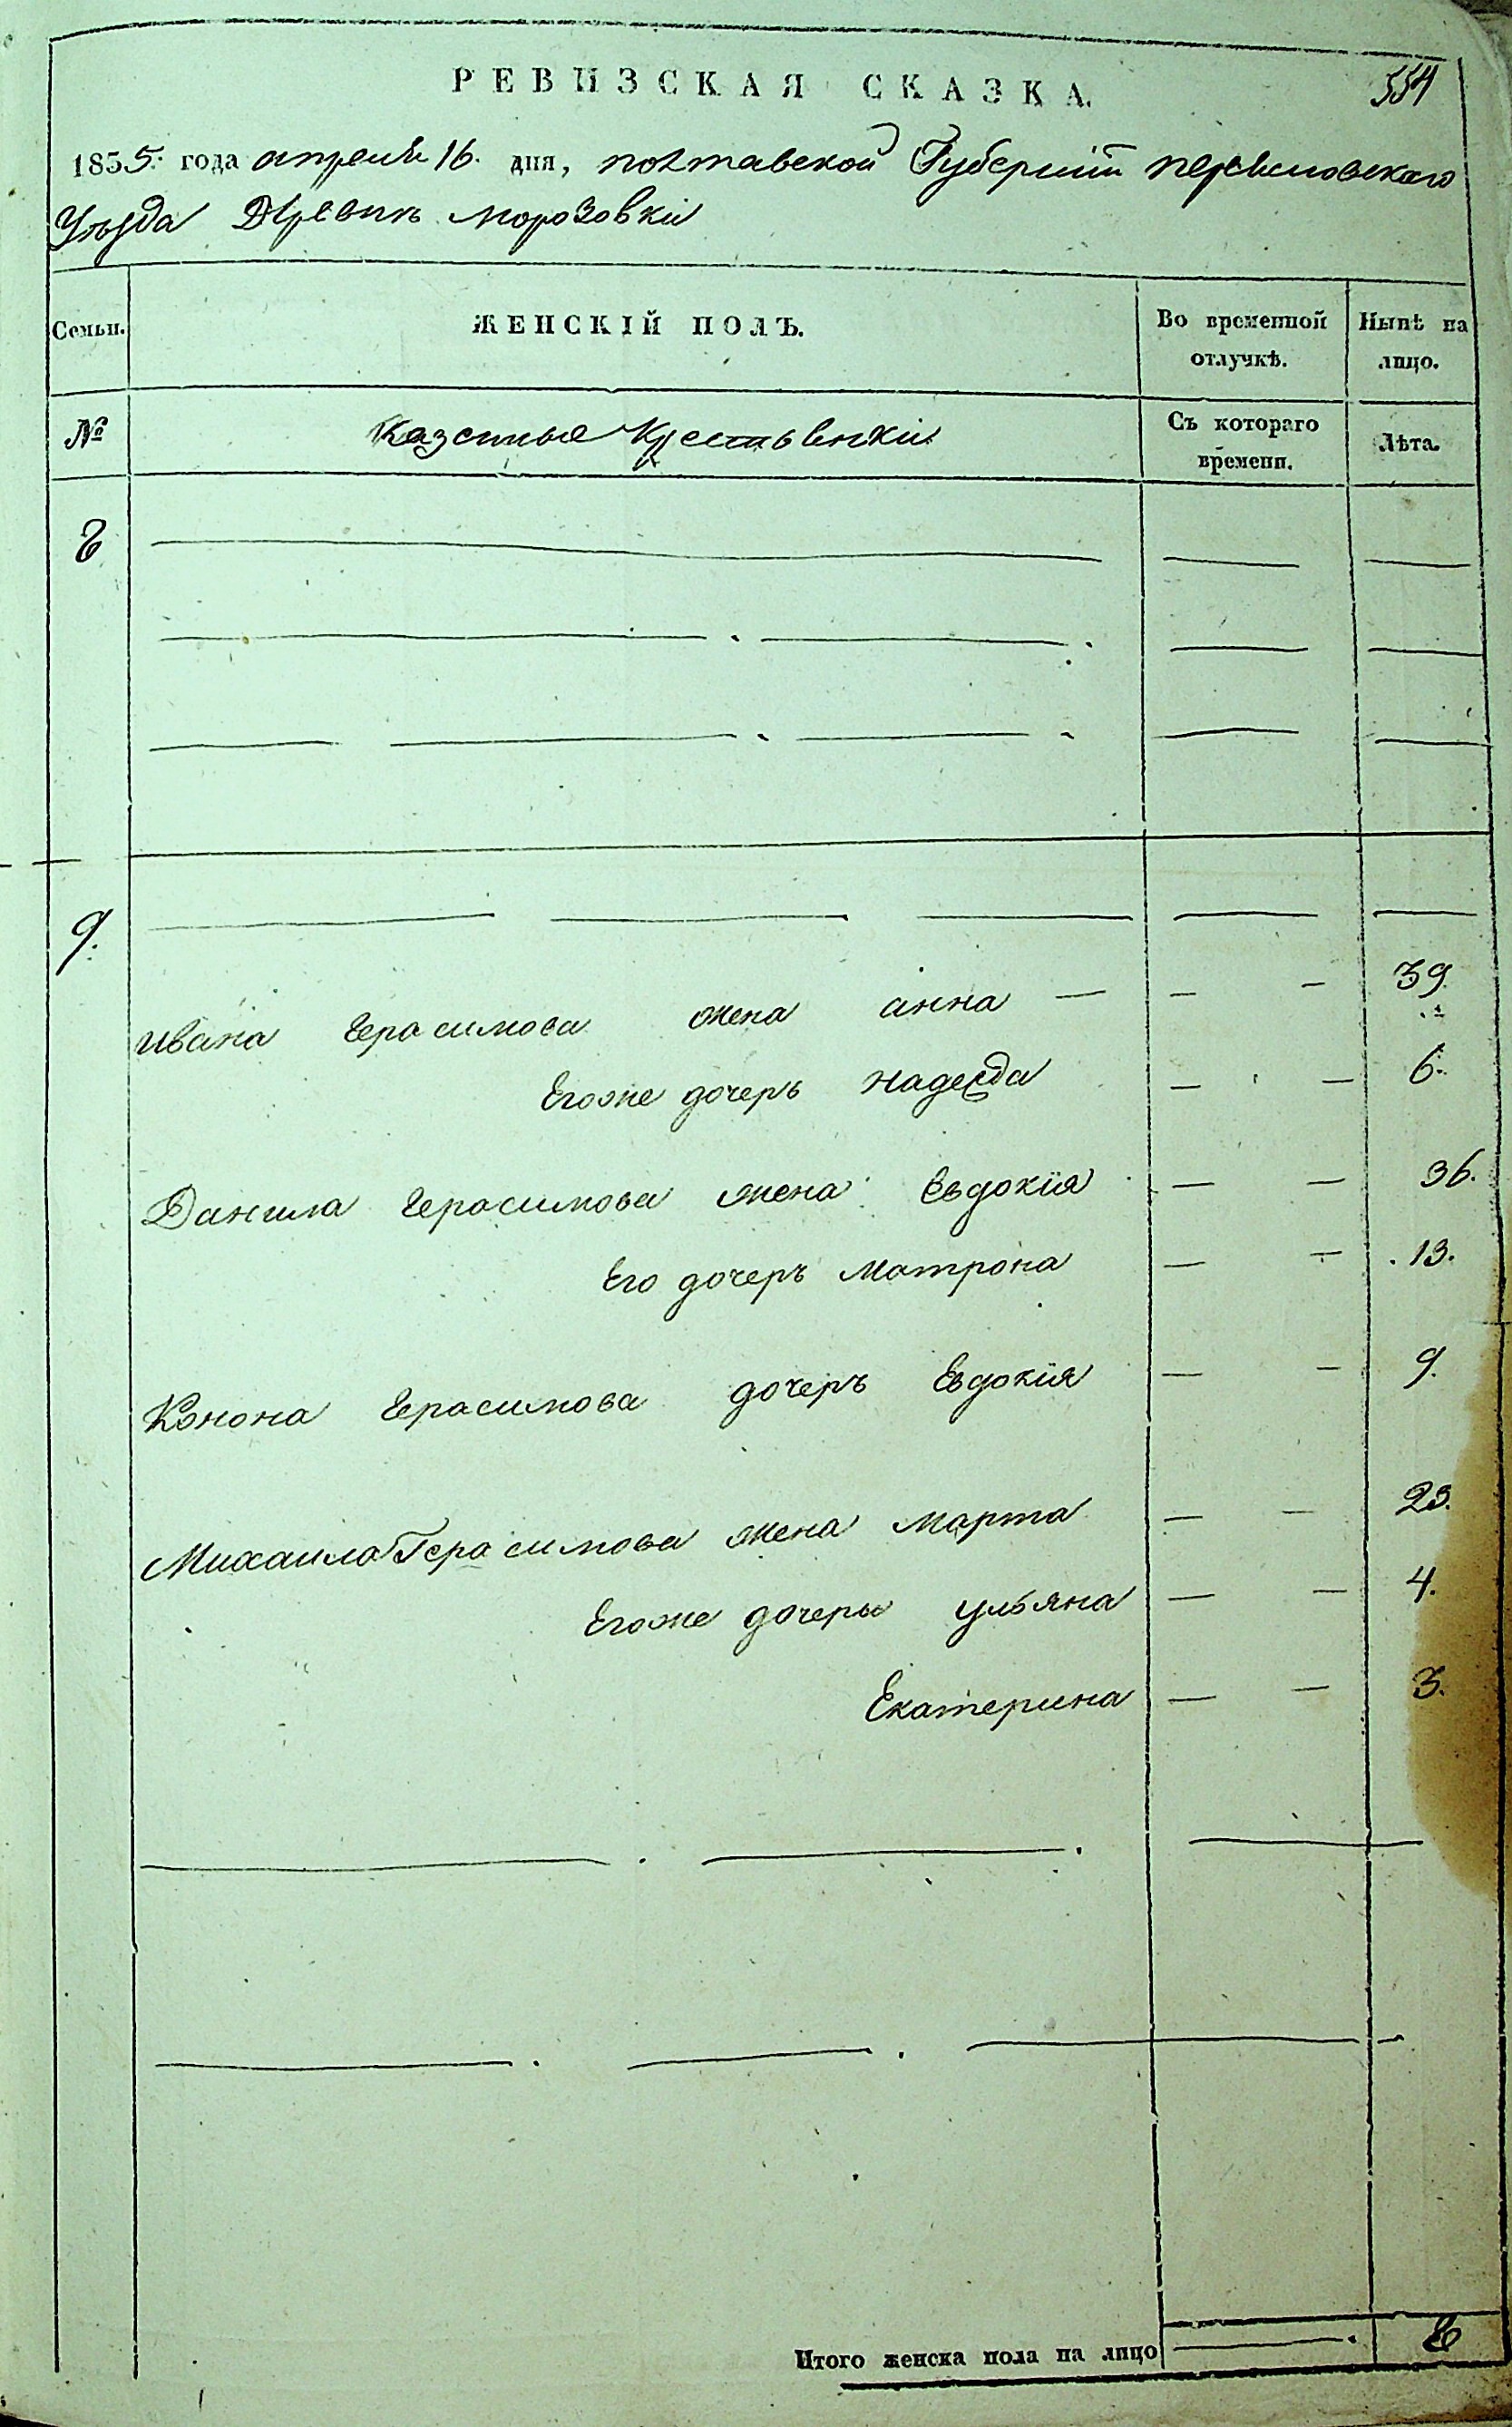 РЕВИЗСКАЯ СКАЗКА.
554
1835. года апреля 16. дня, полтавской Губерніи переяславского
Уезда Деревнѣ морозовки
Семьи.
ЖЕНСКІЙ ПОЛЪ.
Во временной отлучкѣ.
Нынѣ на лицо.
№
Казенные Крестьянки
Съ котораго времени.
Лѣта.
8
9.
ивана Герасимова жена анна — — — 39
Егоже дочерь надежда — — 6.
Данила Герасимова жена Евдокия — — 36.
Его дочерь матрона — — 13.
Конона Герасимова дочерь Евдокия — — 9.
Михаила Герасимова жена марта — — 23.
Егоже дочеры ульяна — — 4.
Екатерина — — 3.
Итого женска пола на лицо — 8